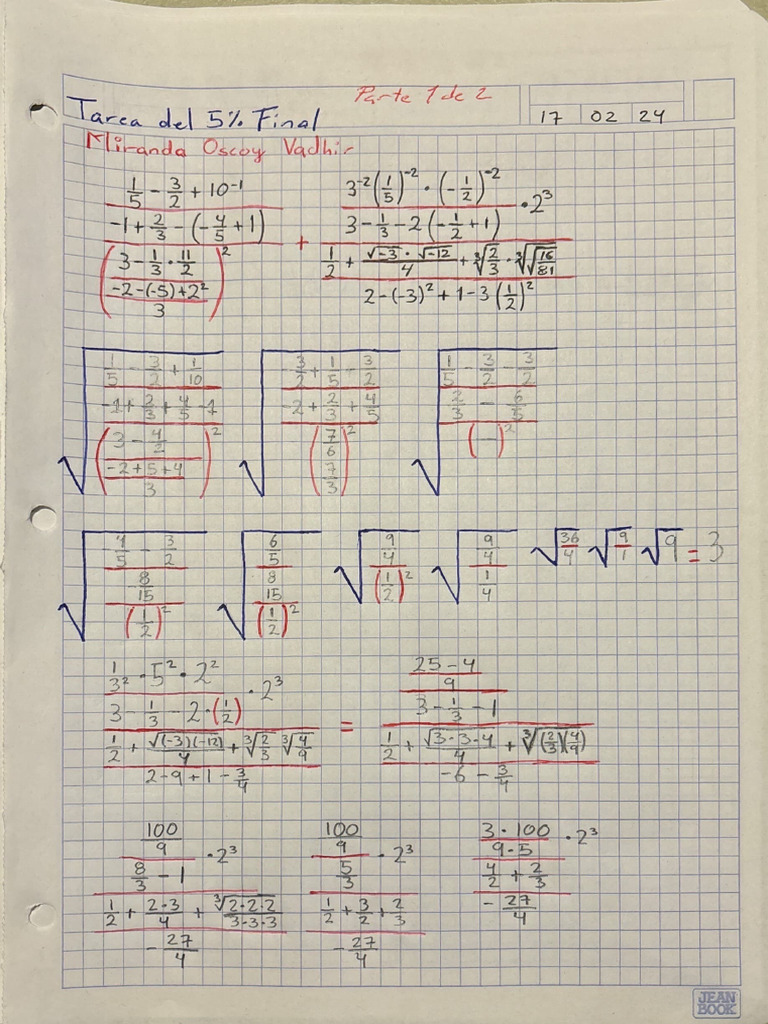 Parte 1 de 2
Tarea del 5% Final
17 02 24
Miranda Oscoy Vadhir
1/5 - 3/2 + 10⁻¹
-1 + 2/3 - (-4/5 + 1)
(3 - 1/3 · 11/2
-2-(-5)+2²
3)²
+
3⁻²(1/5)⁻² · (-1/2)⁻²
3 - 1/3 - 2(-1/2 + 1) · 2³
1/2 + √-3 · √-12/4 + ³√2/3 · ³√√16/81
2-(-3)² + 1 - 3(1/2)²
√ 1/5 - 3/2 + 1/10
-1 + 2/3 + 4/5 - 1
(3 - 4/2
-2+5+4
3)²
√ -3/2 + 1/5 - 3/2
-2 + 2/3 + 4/5
(7/6
7/3)²
√ 1/5 - 3/2 - 3/2
2/3 - 6/5
(-)²
√ -4/5 - 3/2
8/15
(1/2)²
√ 6/5
8/15
(1/2)²
√ 9/4
(1/2)²
√ 9/4
1/4
√36/4 √9/1 √9 = 3
1/3² · 5² · 2²
3 - 1/3 - 2·(1/2) · 2³
1/2 + √(-3)(-12)/4 + ³√2/3 ³√4/9
2-9+1-3/4
=
25-4
9
3 - 1/3 - 1
1/2 + √3·3·4/4 + ³√(2/3)(4/9)
-6 - 3/4
100/9
8/3 - 1 · 2³
1/2 + 2·3/4 + ³√2·2·2/3·3·3
-27/4
100/9
5/3 · 2³
1/2 + 3/2 + 2/3
-27/4
3·100
9·5 · 2³
4/2 + 2/3
-27/4
JEAN
BOOK